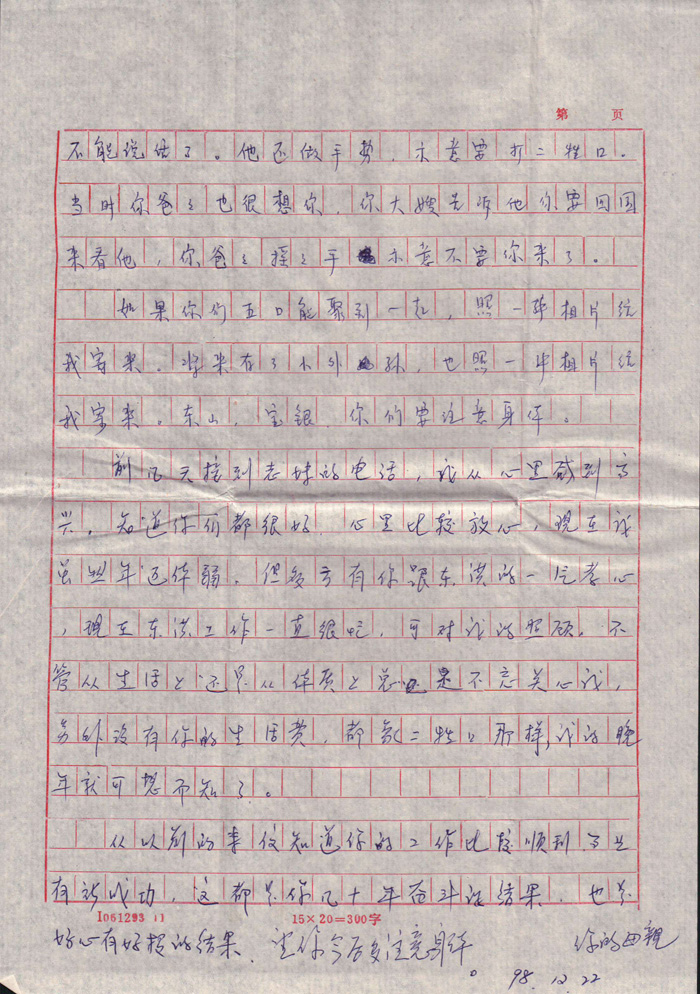 第 页
不能说话了。他还做手势,示意要打二牲口。
当时你爸々也很想你,你大嫂告诉他你要回国
来看他,你爸々摇々手示意不要你来了。
如果你们五口能聚到一起,照一张相片给
我寄来。将来有了小外孙,也照一张相片给
我寄来。东山、宝银,你们要注意身体。
前几天接到老妹的电话,我从心里感到高
兴,知道你们都很好,心里比较放心,现在我
虽然年迈体弱,但多亏有你跟东洪的一片孝心
,现在东洪工作一直很忙,可对我的照顾,不
管从生活上还是从体质上总是不忘关心我,
另外没有你的生活费,都象二牲口那样,我的晚
年就可想而知了。
从以前的来信知道你的工作比较顺利
有所成功,这都是你几十年奋斗的结果,也是
I061293 15×20=300字
好心有好报的结果,望你今后多注意身体。 你的母親
98.12.22